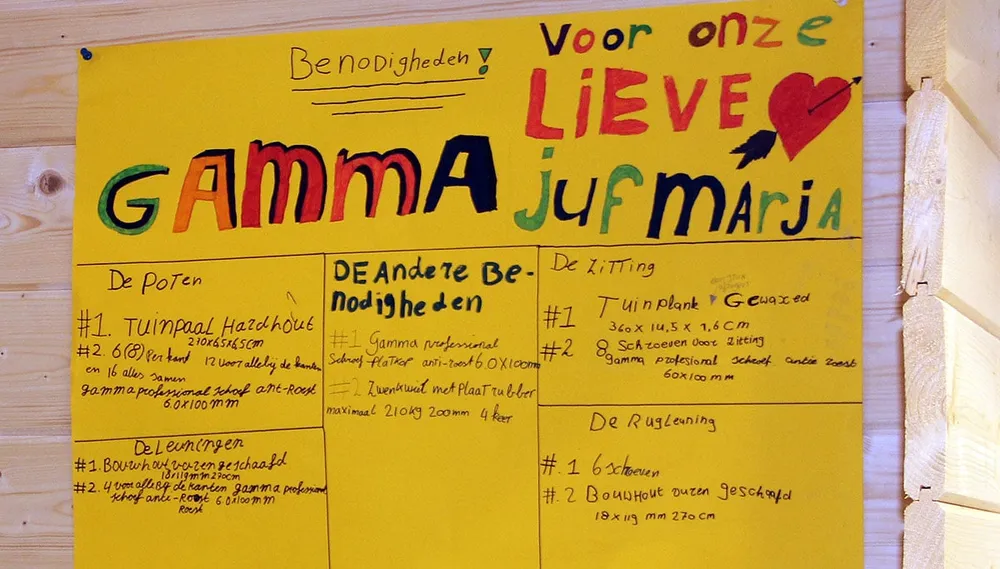 Benodigheden!
Voor onze
LiEVE
GAMMA
juf mArjA
De Poten
#1. Tuinpaal Hardhout
210x6,5x6,5cm
#2. 6(8) Per kant 12 voor allebij de kanten
en 16 alles samen
gamma professional schoef ant-Roest
6.0x100mm
De Leuningen
#1. Bouwhout vuren geschaafd
18x119mm 270cm
#2. 4 voor alle Bij de kanten gamma professional
schoef anti-Roest 6.0x100mm
Roest
DE Andere Be-
nodigheden
#1 Gamma professional
Schroef-platkop anti-roest 6.0x100mm
#2 Zwenkwiel met plaat rubber
maximaal 210kg 200mm 4 keer
De Zitting
#1 Tuinplank Gewaxed
360 x 14,5 x 1,6 cm
#2 8 Schroeven voor zitting
gamma profesional schroef antie roest
60x100 mm
De Rugleuning
#.1 6 schoeven
#.2 Bouwhout vuren geschaafd
18 x 119 mm 270 cm